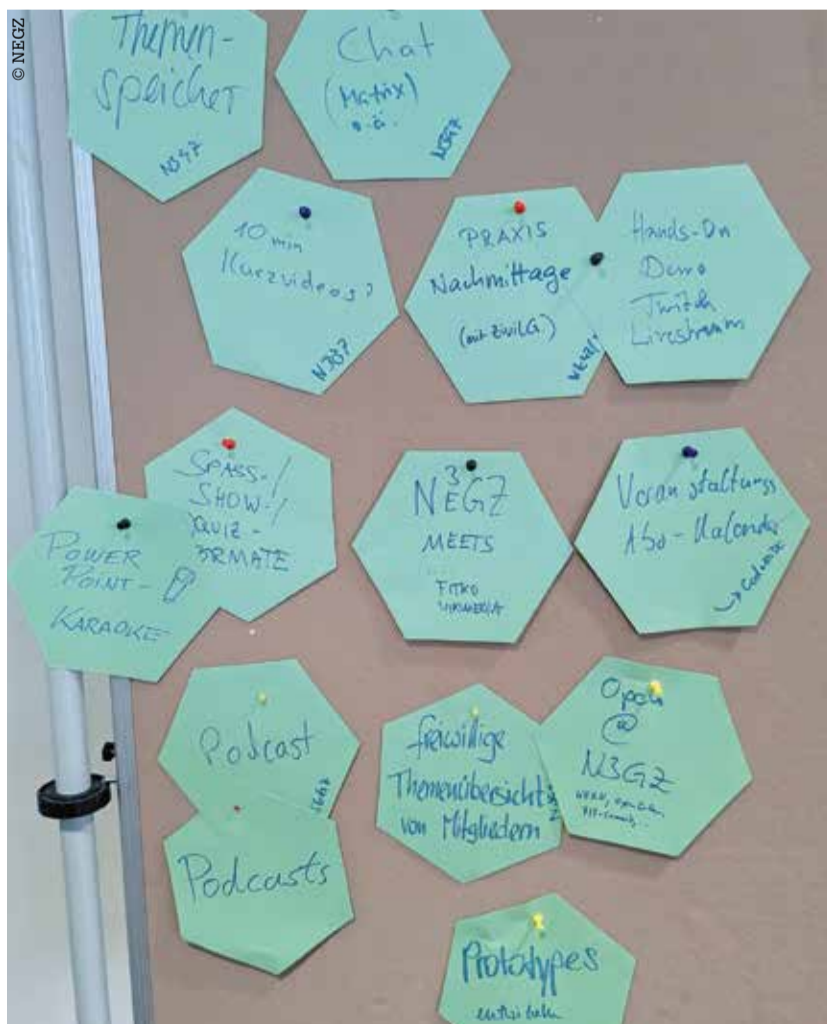 © NEGZ
Themen-
speicher
N3GZ
Chat
(Matrix)
o.ä.
N3GZ
10 min
Kurzvideos?
N3GZ
PRAXIS
Nachmittage
(mit ZivilG)
Hands-On
Demo
Twitch
Livestream
SPASS-/
SHOW-/
QUIZ-
ORMATE
POWER
POINT-
KARAOKE
N3EGZ
MEETS
FITKO
Veranstaltungs
Abo-Kalender
Podcast
Podcasts
freiwillige
Themenübersicht
von Mitgliedern
Open
@
N3GZ
Prototypes
entwickeln